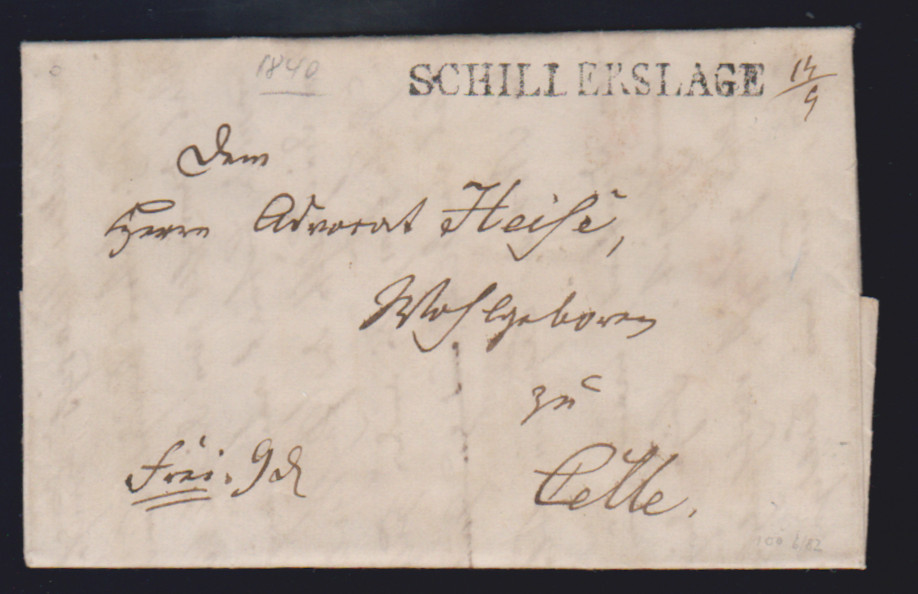 1840
SCHILLERSLAGE
14/9
Dem
Herrn Advocat Heise,
Wohlgeboren
zu
Celle.
Frei.